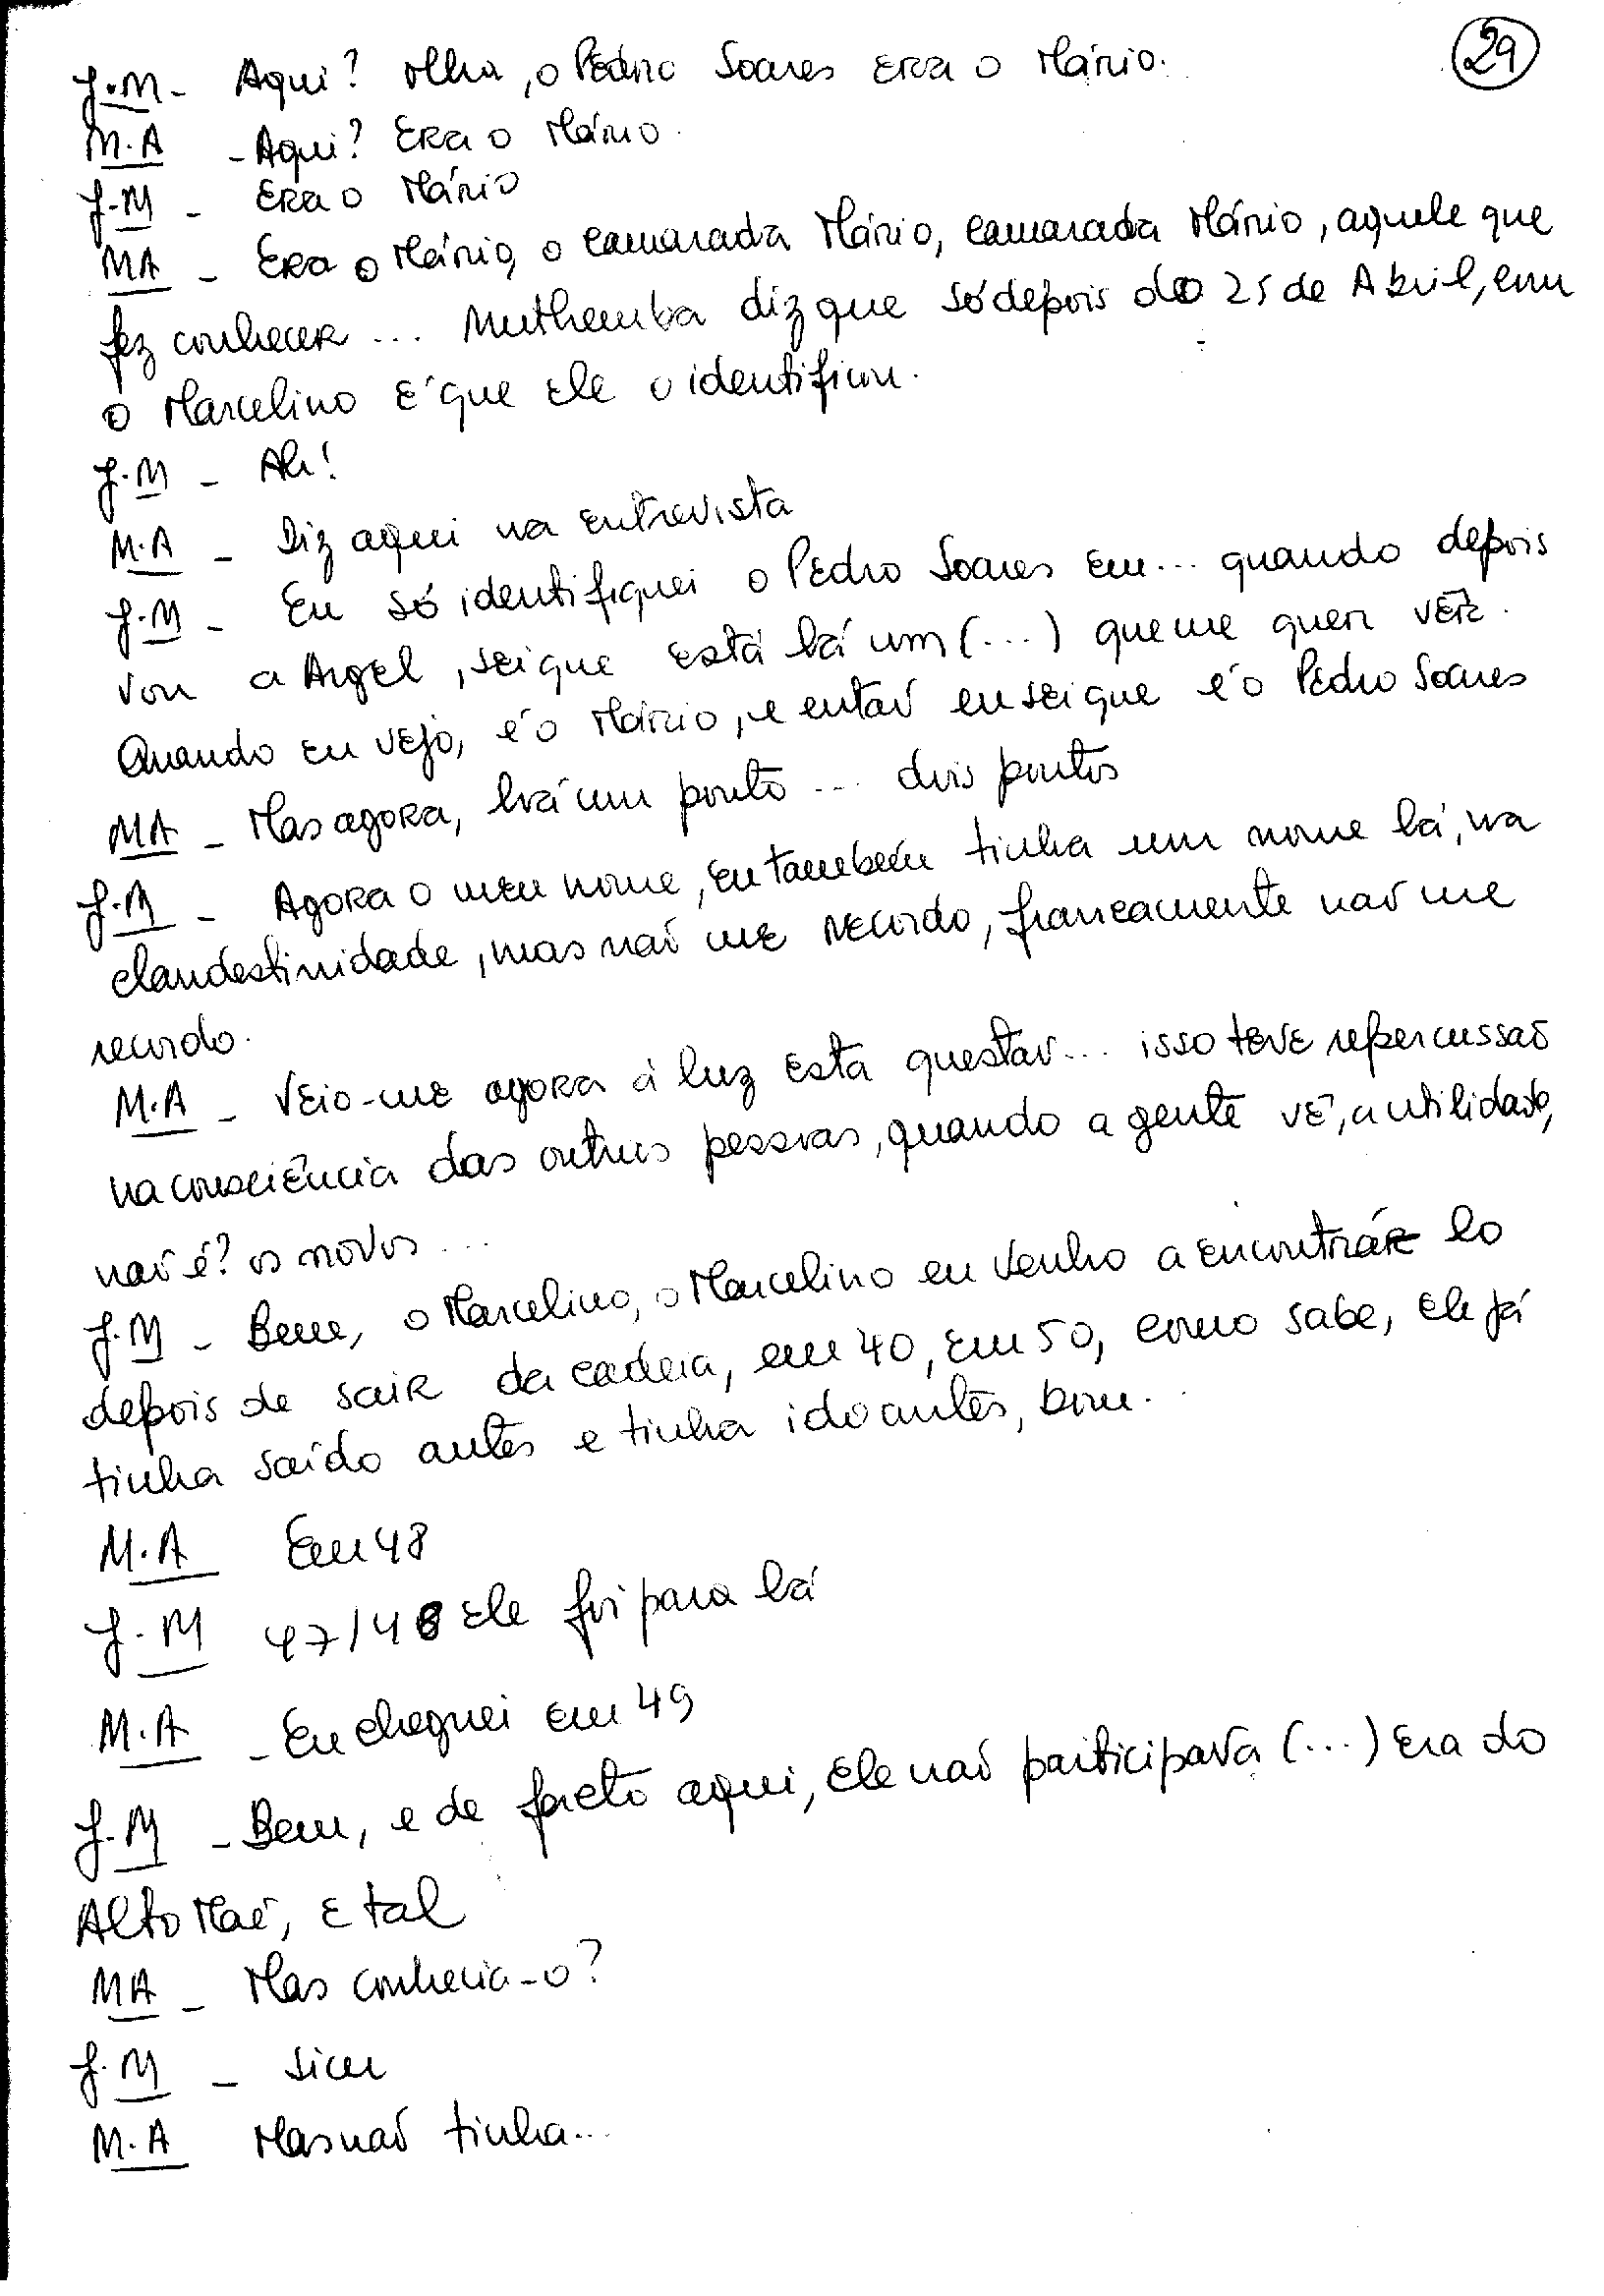 29
J.M - Aqui? Olha, o Pedro Soares era o Mário.
M.A - Aqui? Era o Mário.
J.M - Era o Mário
MA - Era o Mário, o camarada Mário, camarada Mário, aquele que
fez conhecer ... Muthemba diz que só depois do 25 de Abril, com
o Marcelino é que ele o identificou.
J.M - Ah!
M.A - Diz aqui na entrevista
J.M - Eu só identifiquei o Pedro Soares em... quando depois
vou a Argel, sei que está lá um (...) que me quer ver.
Quando eu vejo, é o Mário, e então eu sei que é o Pedro Soares
MA - Mas agora, há um ponto ... dois pontos
J.M - Agora o meu nome, eu também tinha um nome lá, na
clandestinidade, mas não me recordo, francamente não me
recordo.
M.A - Veio-me agora à luz esta questão... isso teve repercussão
na consciência das outras pessoas, quando a gente vê, a utilidade,
não é? os novos ...
J.M - Bem, o Marcelino, o Marcelino eu venho a encontrá lo
depois de sair da cadeia, em 40, em 50, como sabe, ele já
tinha saído antes e tinha ido antes, bom...
M.A Em 48
J.M 47/48 ele foi para lá
M.A - Eu cheguei em 49
J.M - Bem, e de facto aqui, ele não participava (...) era do
Alto Maé, e tal
MA - Mas conhecia-o?
J.M - Sim
M.A Mas não tinha...